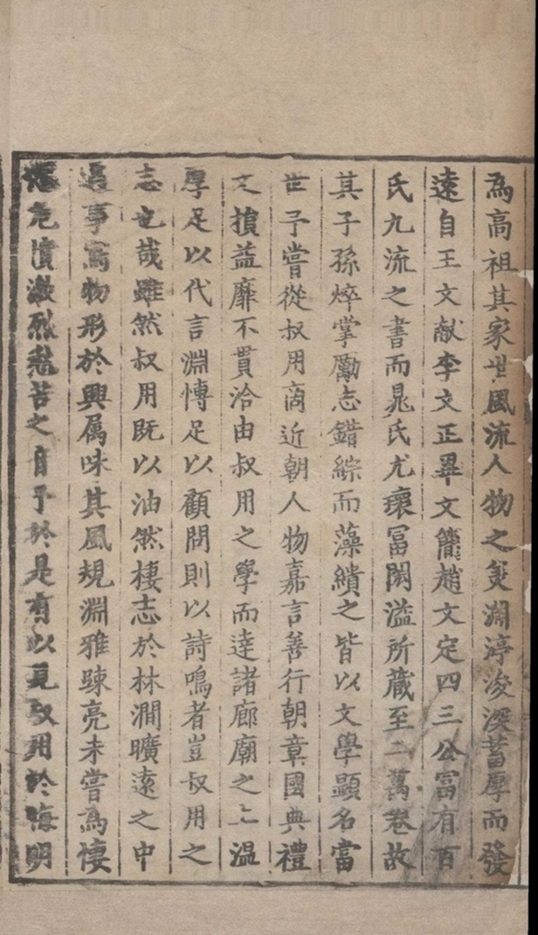 為高祖其家世風流人物之美淵渟浚深蓄厚而發
逺自王文献李文正畢文簡趙文定四三公富有百
氏九流之書而晁氏尤瓌富閎溢所蔵至二萬卷故
其子孫焠掌勵志錯綜而藻繢之皆以文學顯名當
世予嘗從叔用商近朝人物嘉言善行朝章國典禮
文損益靡不貫洽由叔用之學而逹諸廊廟之上温
厚足以代言淵慱足以顧問則以詩鳴者豈叔用之
志也哉雖然叔用既以油然棲志於林澗曠逺之中
遇事寫物形於興属味其風規淵雅踈亮未嘗為悽
危憤激烈愁苦之音予於是有以見叔用於晦明